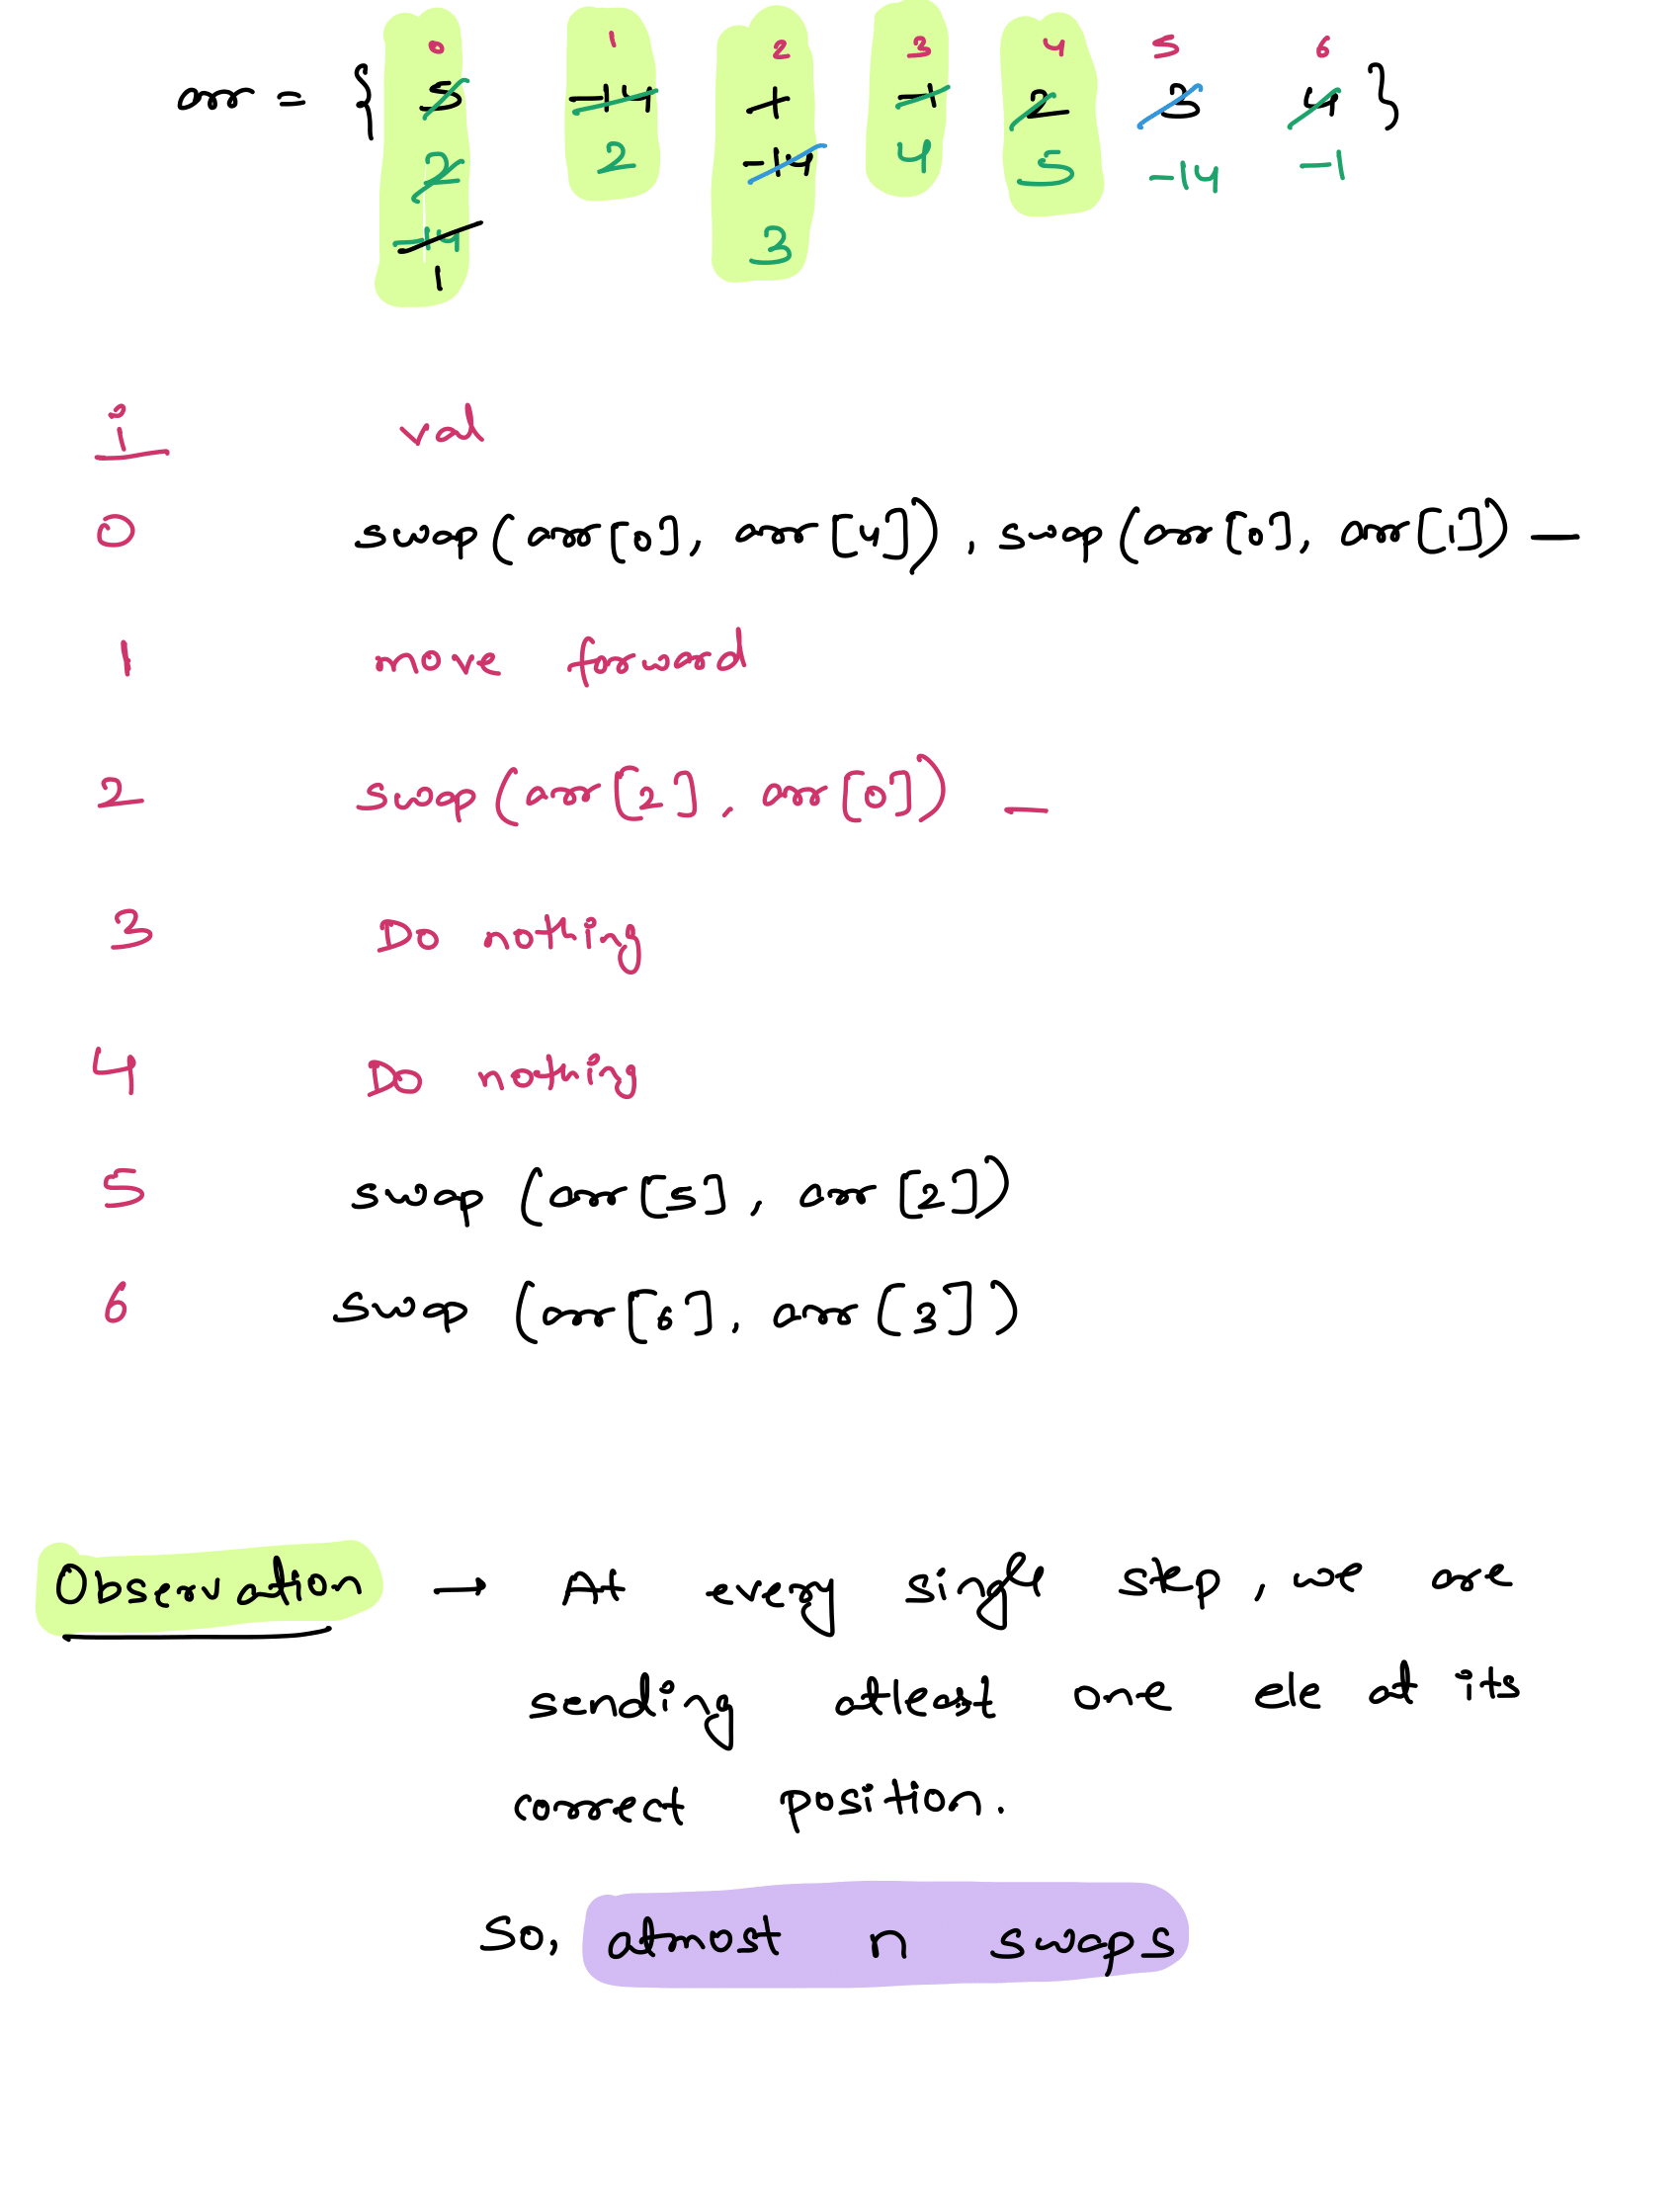 0 1 2 3 4 5 6
arr = { 5 -14 1 -1 2 3 4 }
2 2 -14 4 5 -14 -1
-14 3
1
i val
0 swap(arr[0], arr[4]), swap(arr[0], arr[1]) —
1 move forward
2 swap(arr[2], arr[0]) —
3 Do nothing
4 Do nothing
5 swap (arr[5], arr[2])
6 swap (arr[6], arr[3])
Observation → At every single step, we are
sending atleast one ele at its
correct position.
So, atmost n swaps